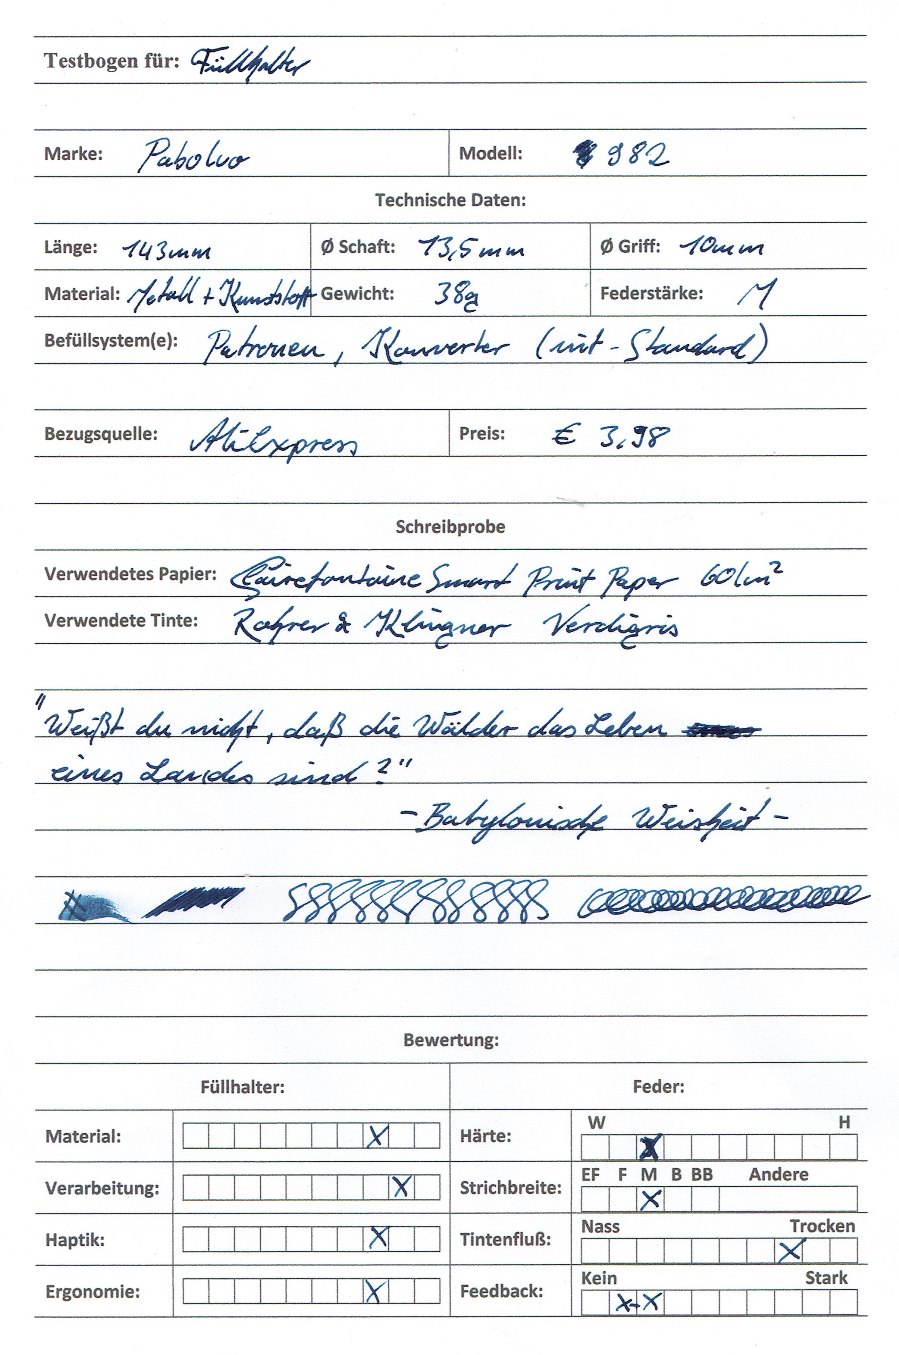 Testbogen für: Füllhalter
Marke: Pabolvo Modell: 982
Technische Daten:
Länge: 143mm Ø Schaft: 13,5mm Ø Griff: 10mm
Material: Metall + Kunststoff Gewicht: 38g Federstärke: M
Befüllsystem(e): Patronen, Konverter (int-Standard)
Bezugsquelle: AliExpress Preis: € 3,98
Schreibprobe
Verwendetes Papier: Clairefontaine Smart Print Paper 60/m²
Verwendete Tinte: Rohrer & Klingner Verdigris
"Weißt du nicht, daß die Wälder das Leben
eines Landes sind?"
-Babylonische Weisheit-
Bewertung:
Füllhalter: Feder:
Material: X Härte: W H X
Verarbeitung: X Strichbreite: EF F M B BB Andere X
Haptik: X Tintenfluß: Nass Trocken X
Ergonomie: X Feedback: Kein Stark X-X